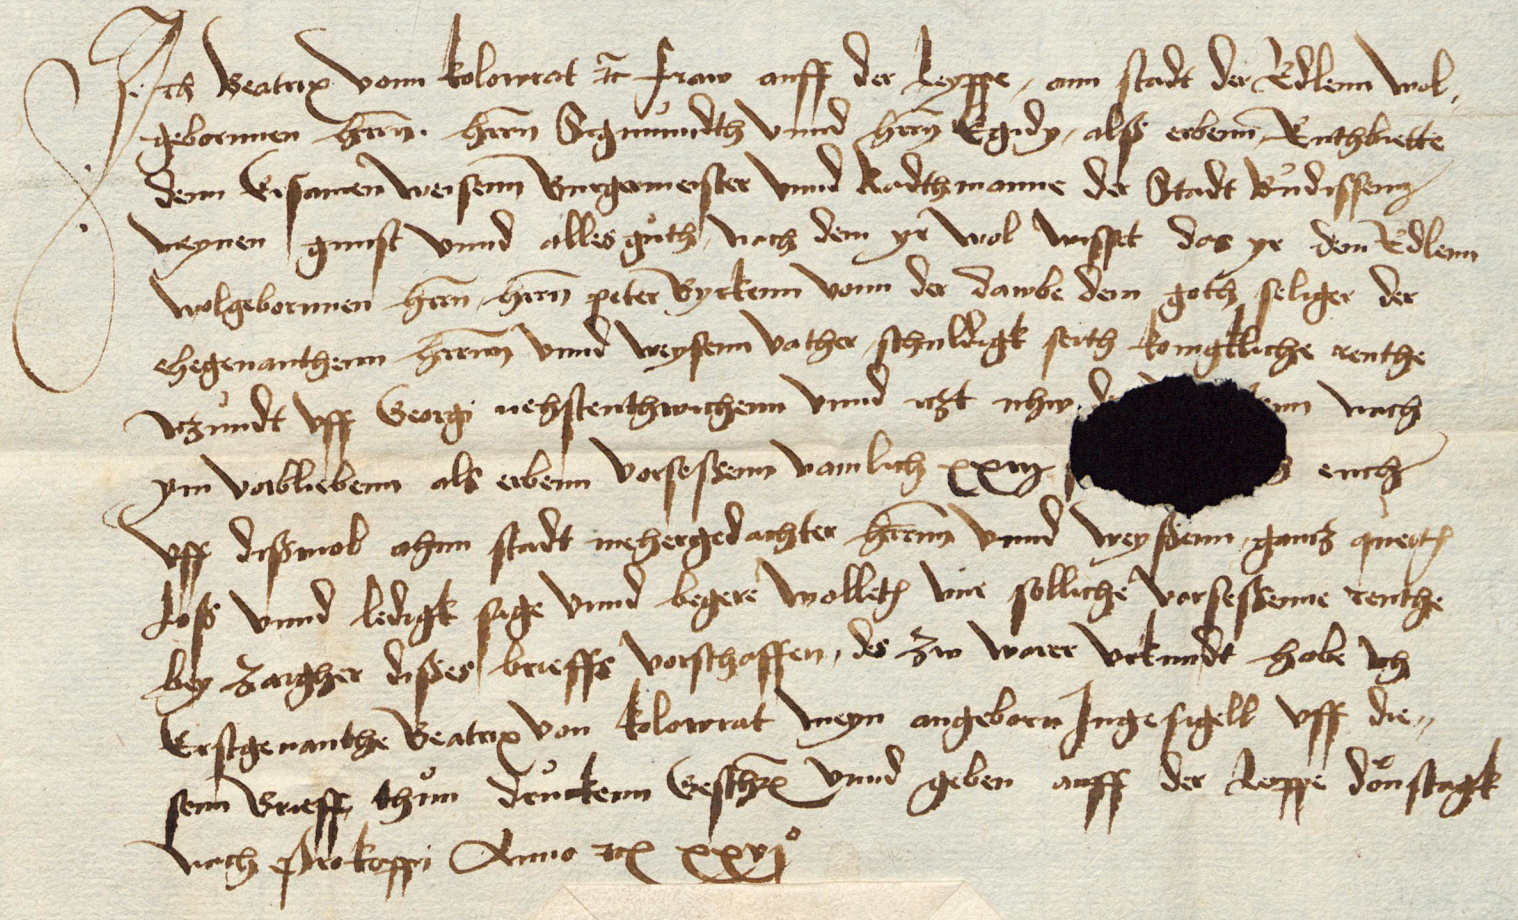 Ich Beatrix vonn kolowrat ꝛc fraw auff der Leyppe, ann stadt der Edlenn wol,
gebornnen hern̄. hern̄ Sigmůndth vnnd hern̄ Egidy, alß erbenn, Enthbiette
denn Ersamen weisenn Burgermeister vnnd Radthmanne der Stadt Bůdissenn
meynen gunst vnnd alles gůth, noch dem yr wol wisset das yr dem Edlenn
wolgebornnen hern̄, hern̄ peter Byrkenn vonn der dawbe dem goth seliger der
ehegenanthenn hernn̄ vnnd weysenn vather schuldigk seith konigkliche renthe
itzůndt vff Georgi nehstenthwichenn vnnd itzt nhw nach
ym vorbliebenn als erbenn vorseßenn namlich euch
vff dißmol ahnn stadt mehergedachter hernn̄ vnnd weyßenn, gantz
Loß vnnd ledigk sage vnnd begere wolleth mir solliche vorseßenne renthe
bey zaigher dißes brieffs vorschaffen, des zw warer vrkundt habe ich
Erstgenanthe Beatrix von kolowrat meyn angeborn Ingesigell vff die,,
senn Brieff, thůn drůckenn Geschr vnnd geben auff der Leyppe dőnstagk
nach Prokoppi Anno ꝛc xxvjᵒ